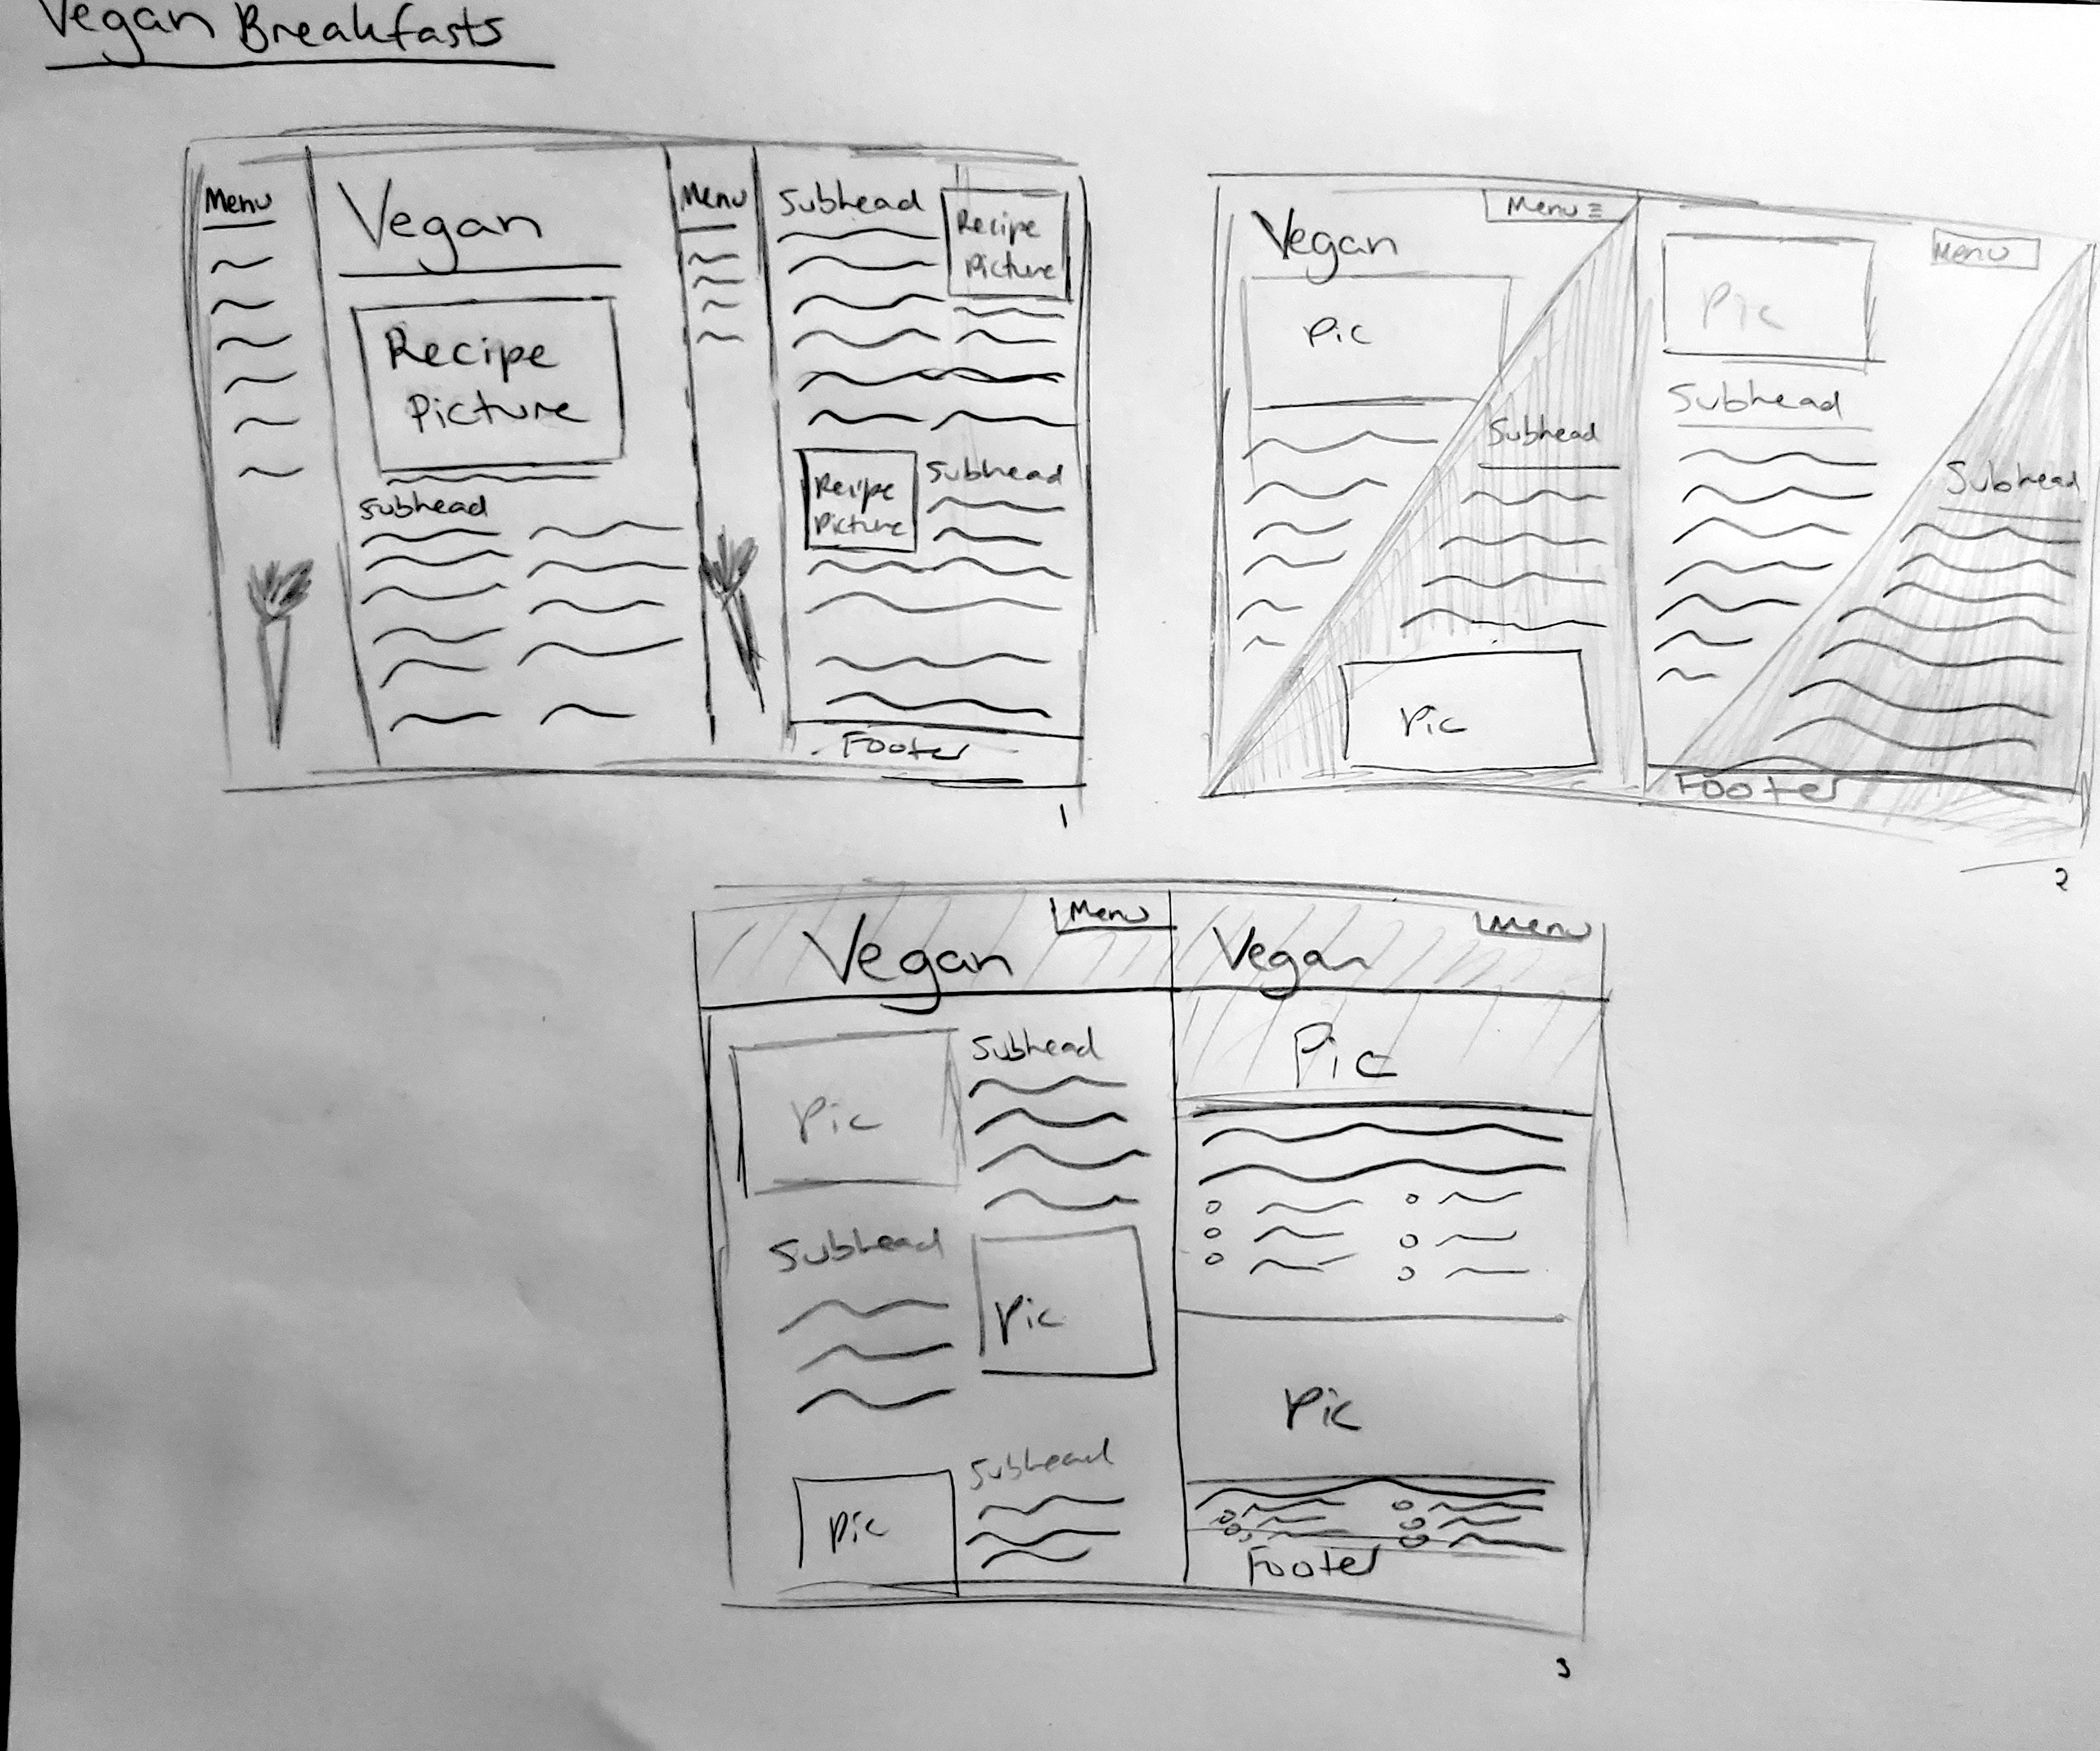 Vegan Breakfasts
Menu
Vegan
Recipe
Picture
Subhead
Menu
Subhead
Recipe
Picture
Recipe
Picture
Subhead
Footer
1
Vegan
Menu
Pic
Subhead
Pic
Menu
Pic
Subhead
Subhead
Footer
2
Vegan
Menu
Pic
Subhead
Subhead
Pic
Pic
Subhead
Vegan
Menu
Pic
Pic
Footer
3